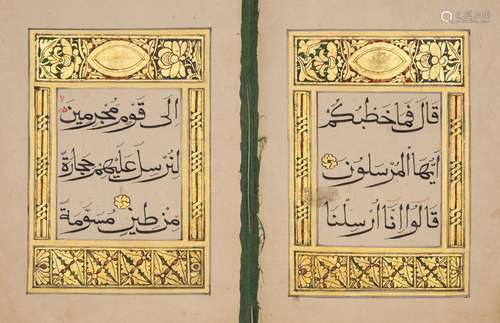 قَالَ فَمَا خَطْبُكُمْ
أَيُّهَا الْمُرْسَلُونَ
قَالُوا إِنَّا أُرْسِلْنَا
إِلَى قَوْمٍ مُجْرِمِينَ
لِنُرْسِلَ عَلَيْهِمْ حِجَارَةً
مِنْ طِينٍ مُسَوَّمَةً